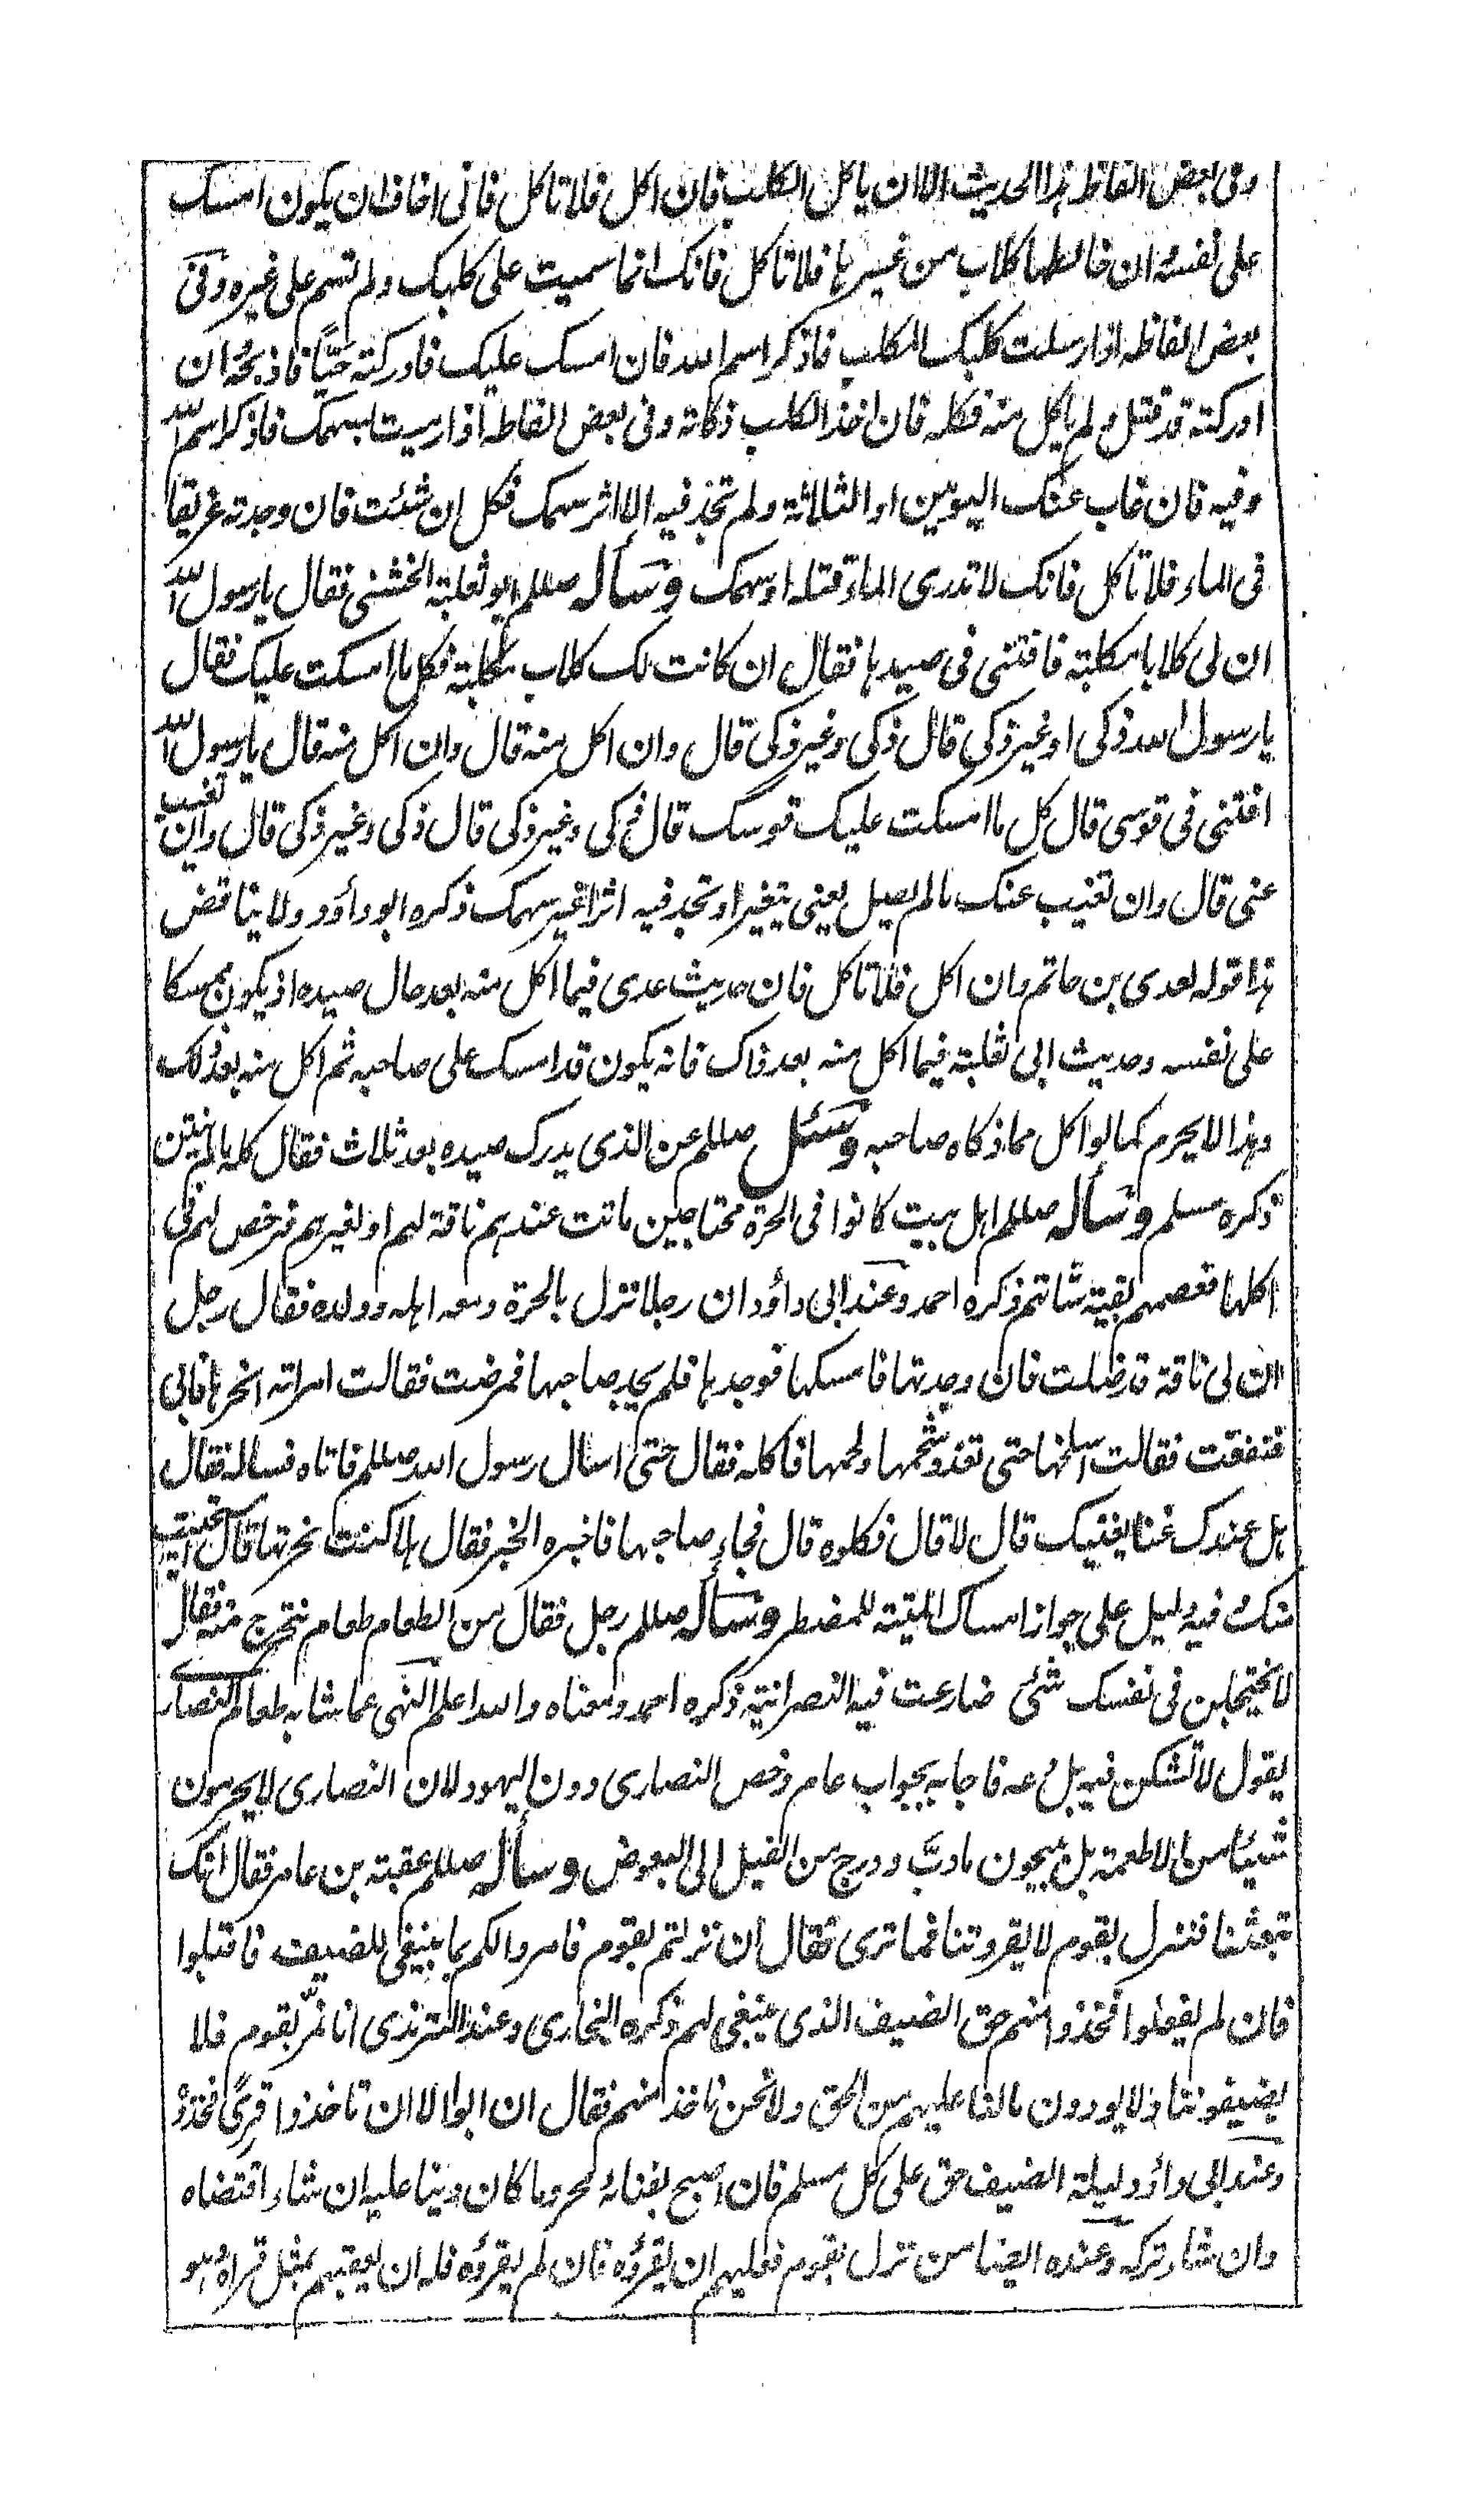 وفی بعض الفاظ هذا الحدیث الا ان یاکل الکلب فان اکل فلا تاکل فانی اخاف ان یکون امسک
علی نفسه ان خالطها کلاب من غیرها فلا تاکل فانک انما سمیت علی کلبک ولم تسم علی غیره وفی
بعض الفاظه اذا ارسلت کلبک المکلب فاذکر اسم الله فان امسک علیک فادرکته حیًّا فاذبحه ان
ادرکته قد قتل ولم یاکل منه فکله فان اخذ الکلب ذکاته وفی بعض الفاظه اذا رمیت بسهمک فاذکر اسم الله
وفیه فان غاب عنک الیومین او الثلاثة ولم تجد فیه الا اثر سهمک فکل ان شئت فان وجدته غریقا
فی الماء فلا تاکل فانک لا تدری الماء قتله او سهمک وسأله صللم ابو ثعلبة الخشنی فقال یا رسول الله
ان لی کلابا مکلبة فافتنی فی صیدها فقال ان کانت لک کلاب مکلبة فکل ما امسکت علیک فقال
یا رسول الله ذکی او غیر ذکی قال ذکی وغیر ذکی قال وان اکل منه قال وان اکل منه قال یا رسول الله
افتنی فی قوسی قال کل ما امسکت علیک قوسک قال ذکی وغیر ذکی قال ذکی وغیر ذکی قال وان تغیب
عنی قال وان تغیب عنک ما لم یصل یعنی یتغیر او تجد فیه اثرا غیر سهمک ذکره ابو داؤد ولا یناقض
هذا قوله لعدی بن حاتم وان اکل فلا تاکل فان حدیث عدی فیما اکل منه بعد حال صیده اذ یکون ممسکا
علی نفسه وحدیث ابی ثعلبة فیما اکل منه بعد ذاک فانه یکون قد امسک علی صاحبه ثم اکل منه بعد ذلک
وهذا لا یحرم کما لو اکل مما ذکاه صاحبه وسئل صللم عن الذی یدرک صیده بعد ثلاث فقال کله ما لم ینتن
ذکره مسلم وسأله صللم اهل بیت کانوا فی الحرة محتاجین ماتت عندهم ناقة لهم او لغیرهم فرخص لهم فی
اکلها فعصمهم بقیة شاتهم ذکره احمد وعند ابی داؤد ان رجلا نزل بالحرة ومعه اهله وولده فقال رجل
ان لی ناقة قد ضلت فان وجدتها فامسکها فوجدها فلم یجد صاحبها فمرضت فقالت امراته انحرها فابی
فنفقت فقالت اسلخها حتی نقدد شحمها ولحمها فاکله فقال حتی اسال رسول الله صللم فاتاه فساله فقال
هل عندک غنا یغنیک قال لا قال فکلوه قال فجاء صاحبها فاخبره الخبر فقال هلا کنت نحرتها قال استحییت
منک وفیه دلیل علی جواز امساک المیتة للمضطر وسأله صللم رجل فقال من الطعام طعام نتحرج منه فقال
لا یختلجن فی نفسک شئ ضارعت فیه النصرانیة ذکره احمد ومعناه والله اعلم النهی عما شابه طعام النصاری
یقول لا تشکن فیه بل دعه فاجابه بجواب عام وخص النصاری دون الیهود لان النصاری لا یحرمون
شیئا من الاطعمة بل یبیحون ما دبَّ ودرج من الفیل الی البعوض وسأله صللم عقبة بن عامر فقال انک
تبعثنا فننزل بقوم لا یقروننا فما تری فقال ان نزلتم بقوم فامروا لکم بما ینبغی للضیف فاقبلوا
فان لم یفعلوا فخذوا منهم حق الضیف الذی ینبغی لهم ذکره البخاری وعند الترمذی انا نمرّ بقوم فلا
یضیفوننا ولا یودون ما لنا علیهم من الحق ولا نحن ناخذ منهم فقال ان ابوا الا ان تاخذوا قرًی فخذوا
وعند ابی داؤد لیلة الضیف حق علی کل مسلم فان اصبح بفنائه محروما کان دینا علیه ان شاء اقتضاه
وان شاء ترکه وعنده ایضا من نزل بقوم فعلیهم ان یقرؤه فان لم یقرؤه فله ان یعقبهم بمثل قراه وهو